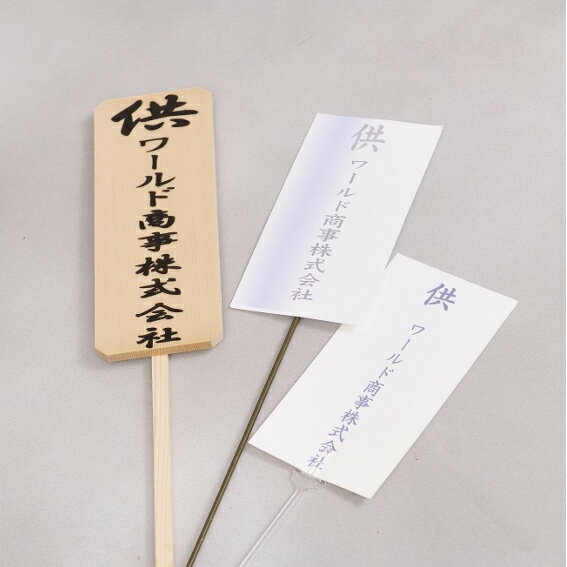 供
ワールド商事株式会社
供
ワールド商事株式会社
供
ワールド商事株式会社